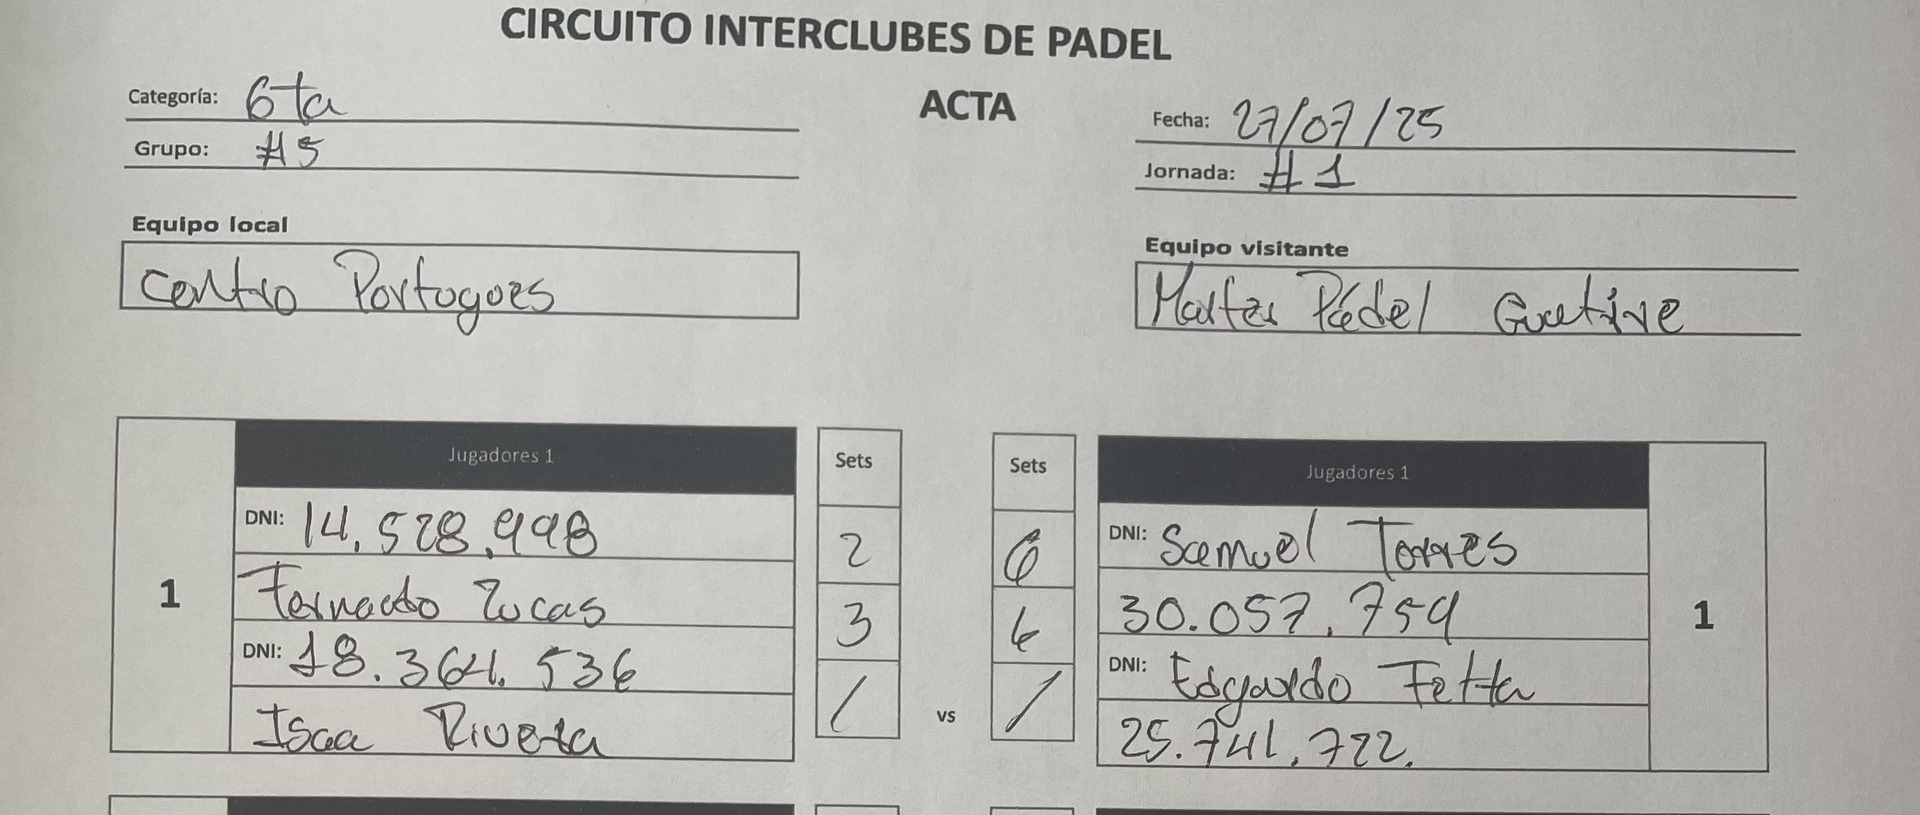 CIRCUITO INTERCLUBES DE PADEL
ACTA
Categoría: 6ta
Grupo: #5
Fecha: 27/07/25
Jornada: #1
Equipo local
Centro Portugues
Equipo visitante
Master Pádel Guatire
Jugadores 1
Sets
Sets
Jugadores 1
1
DNI: 14.528.998
Fernado Lucas
DNI: 18.364.536
Isaa Rivera
2
3
/
vs
6
6
/
DNI: Samuel Torres
30.057.759
DNI: Edgardo Fetta
25.741.722.
1